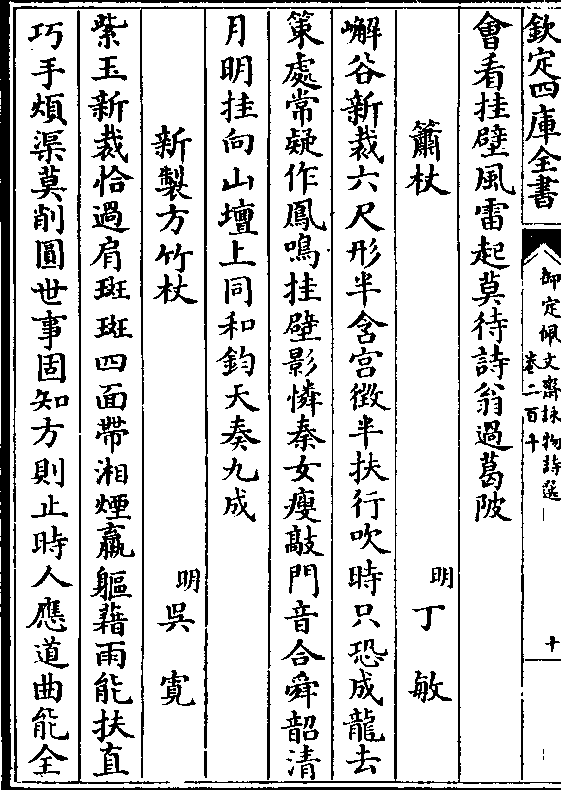 欽定四庫全書
御定佩文齋詠物詩選
卷二百十
十
會看挂壁風雷起莫待詩翁過葛陂
簫杖 明 丁敏
嶰谷新裁六尺形半含宮徵半扶行吹時只恐成龍去
策處常疑作鳳鳴挂壁影憐秦女瘦敲門音合舜韶清
月明挂向山壇上同和鈞天奏九成
新製方竹杖 明 吳寛
紫玉新裁恰過肩斑斑四面帶湘煙羸軀藉雨能扶直
巧手煩渠莫削圓世事固知方則止時人應道曲能全